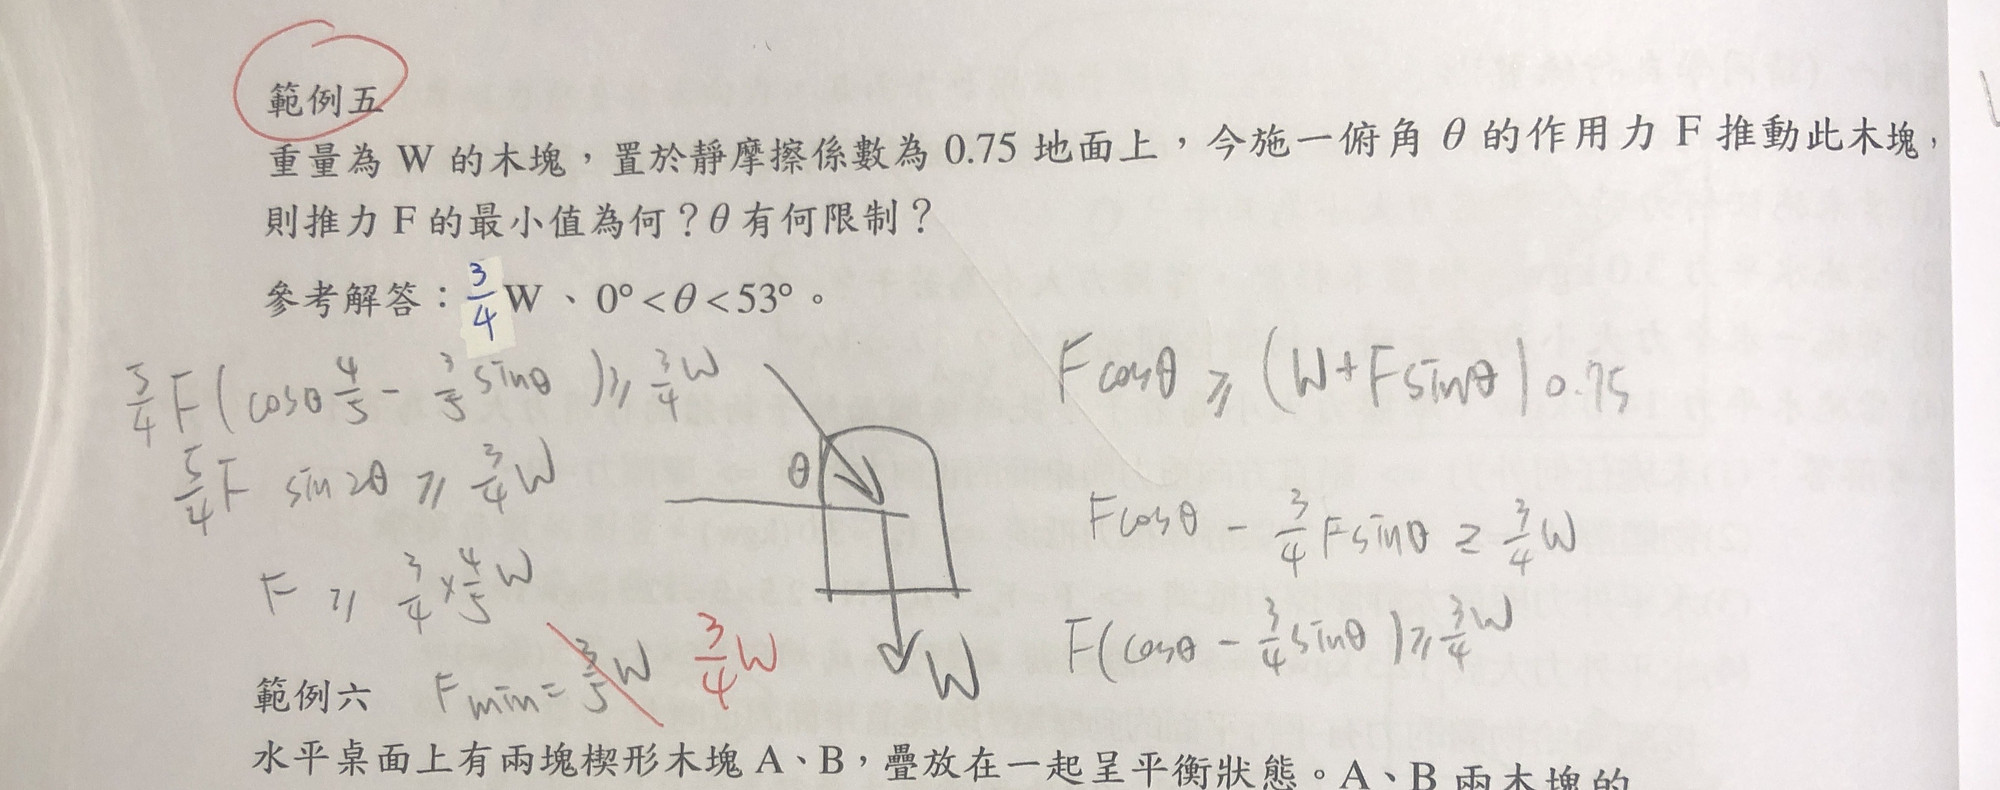 範例五
重量為 W 的木塊，置於靜摩擦係數為 0.75 地面上，今施一俯角 θ 的作用力 F 推動此木塊，
則推力 F 的最小值為何？θ 有何限制？
參考解答：3/4 W、0°<θ<53°。
5/4 F ( cosθ 4/5 - 3/5 sinθ ) ≥ 3/4 W
5/4 F sin2θ ≥ 3/4 W
F ≥ 3/4 × 4/5 W
Fmin = 3/5 W 3/4 W
θ
W
F cosθ ≥ (W+Fsinθ) 0.75
Fcosθ - 3/4 Fsinθ ≥ 3/4 W
F(cosθ - 3/4 sinθ) ≥ 3/4 W
範例六
水平桌面上有兩塊楔形木塊 A、B，疊放在一起呈平衡狀態。A、B 兩木塊的